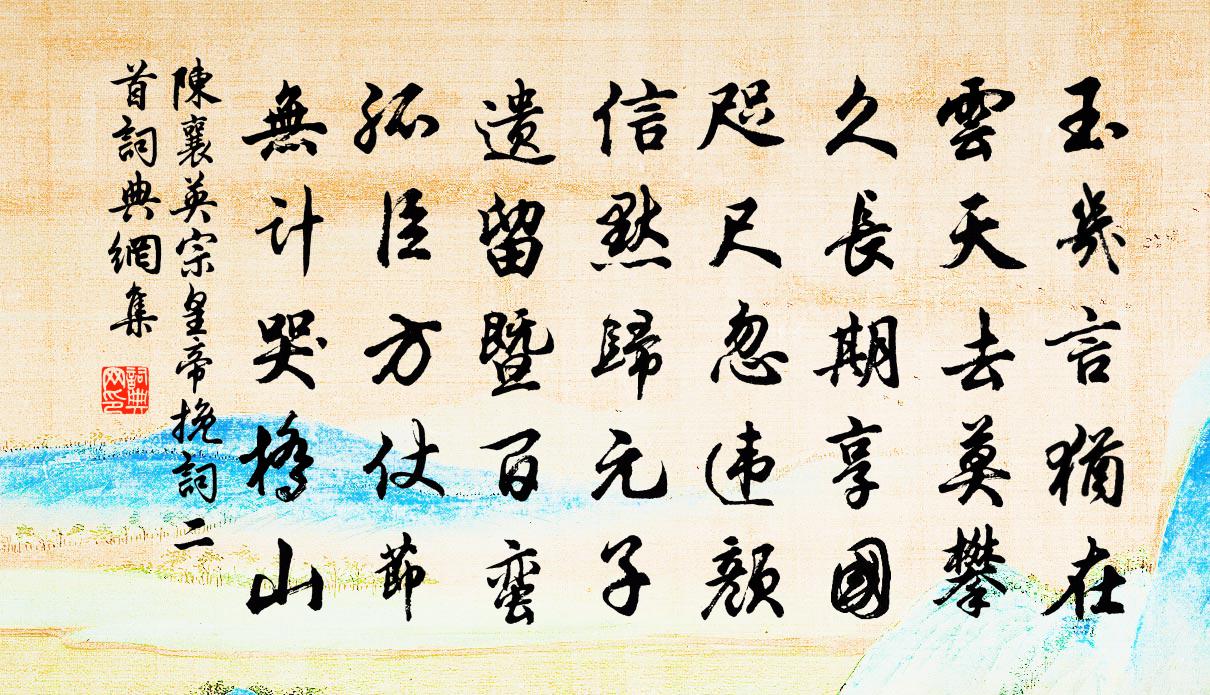 玉幾言猶在
雲天去莫攀
久長期享國
咫尺忽違顏
信默歸元子
遺留暨百蠻
孤臣方仗節
無計哭橋山
陳襄英宗皇帝挽詞二
首詞典網集
詞典
网印